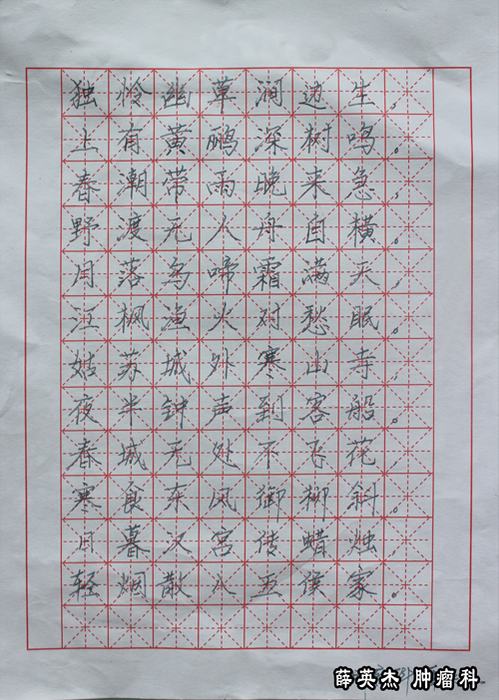 独怜幽草涧边生，
上有黄鹂深树鸣。
春潮带雨晚来急，
野渡无人舟自横。
月落乌啼霜满天，
江枫渔火对愁眠。
姑苏城外寒山寺，
夜半钟声到客船。
春城无处不飞花，
寒食东风御柳斜。
日暮汉宫传蜡烛，
轻烟散入五侯家。
薛英杰 肿瘤科